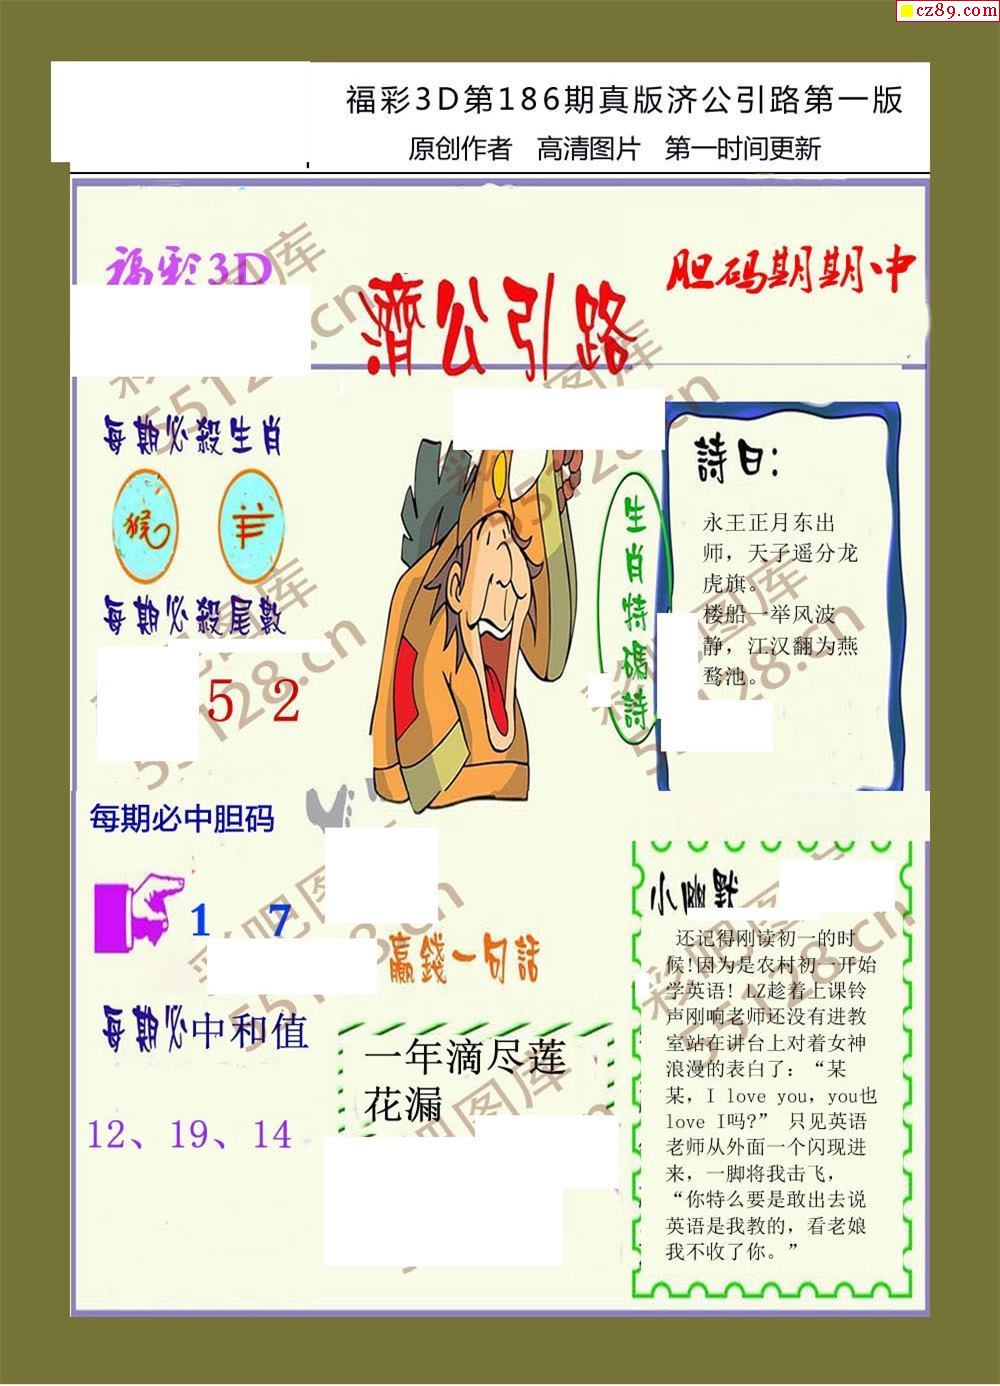 cz89.com
福彩3D第186期真版济公引路第一版
原创作者 高清图片 第一时间更新
福彩3D
濟公引路
胆码期期中
每期必殺生肖
猴 羊
每期必殺尾數
5 2
每期必中胆码
1 7
每期必中和值
12、19、14
生肖特碼詩
詩曰：
永王正月东出
师，天子遥分龙
虎旗。
楼船一举风波
静，江汉翻为燕
鹜池。
赢錢一句話
一年滴尽莲
花漏
小幽默
还记得刚读初一的时
候!因为是农村初一开始
学英语! LZ趁着上课铃
声刚响老师还没有进教
室站在讲台上对着女神
浪漫的表白了：“某
某，I love you，you也
love I吗?” 只见英语
老师从外面一个闪现进
来，一脚将我击飞，
“你特么要是敢出去说
英语是我教的，看老娘
我不收了你。”
彩吧图库
55128.cn